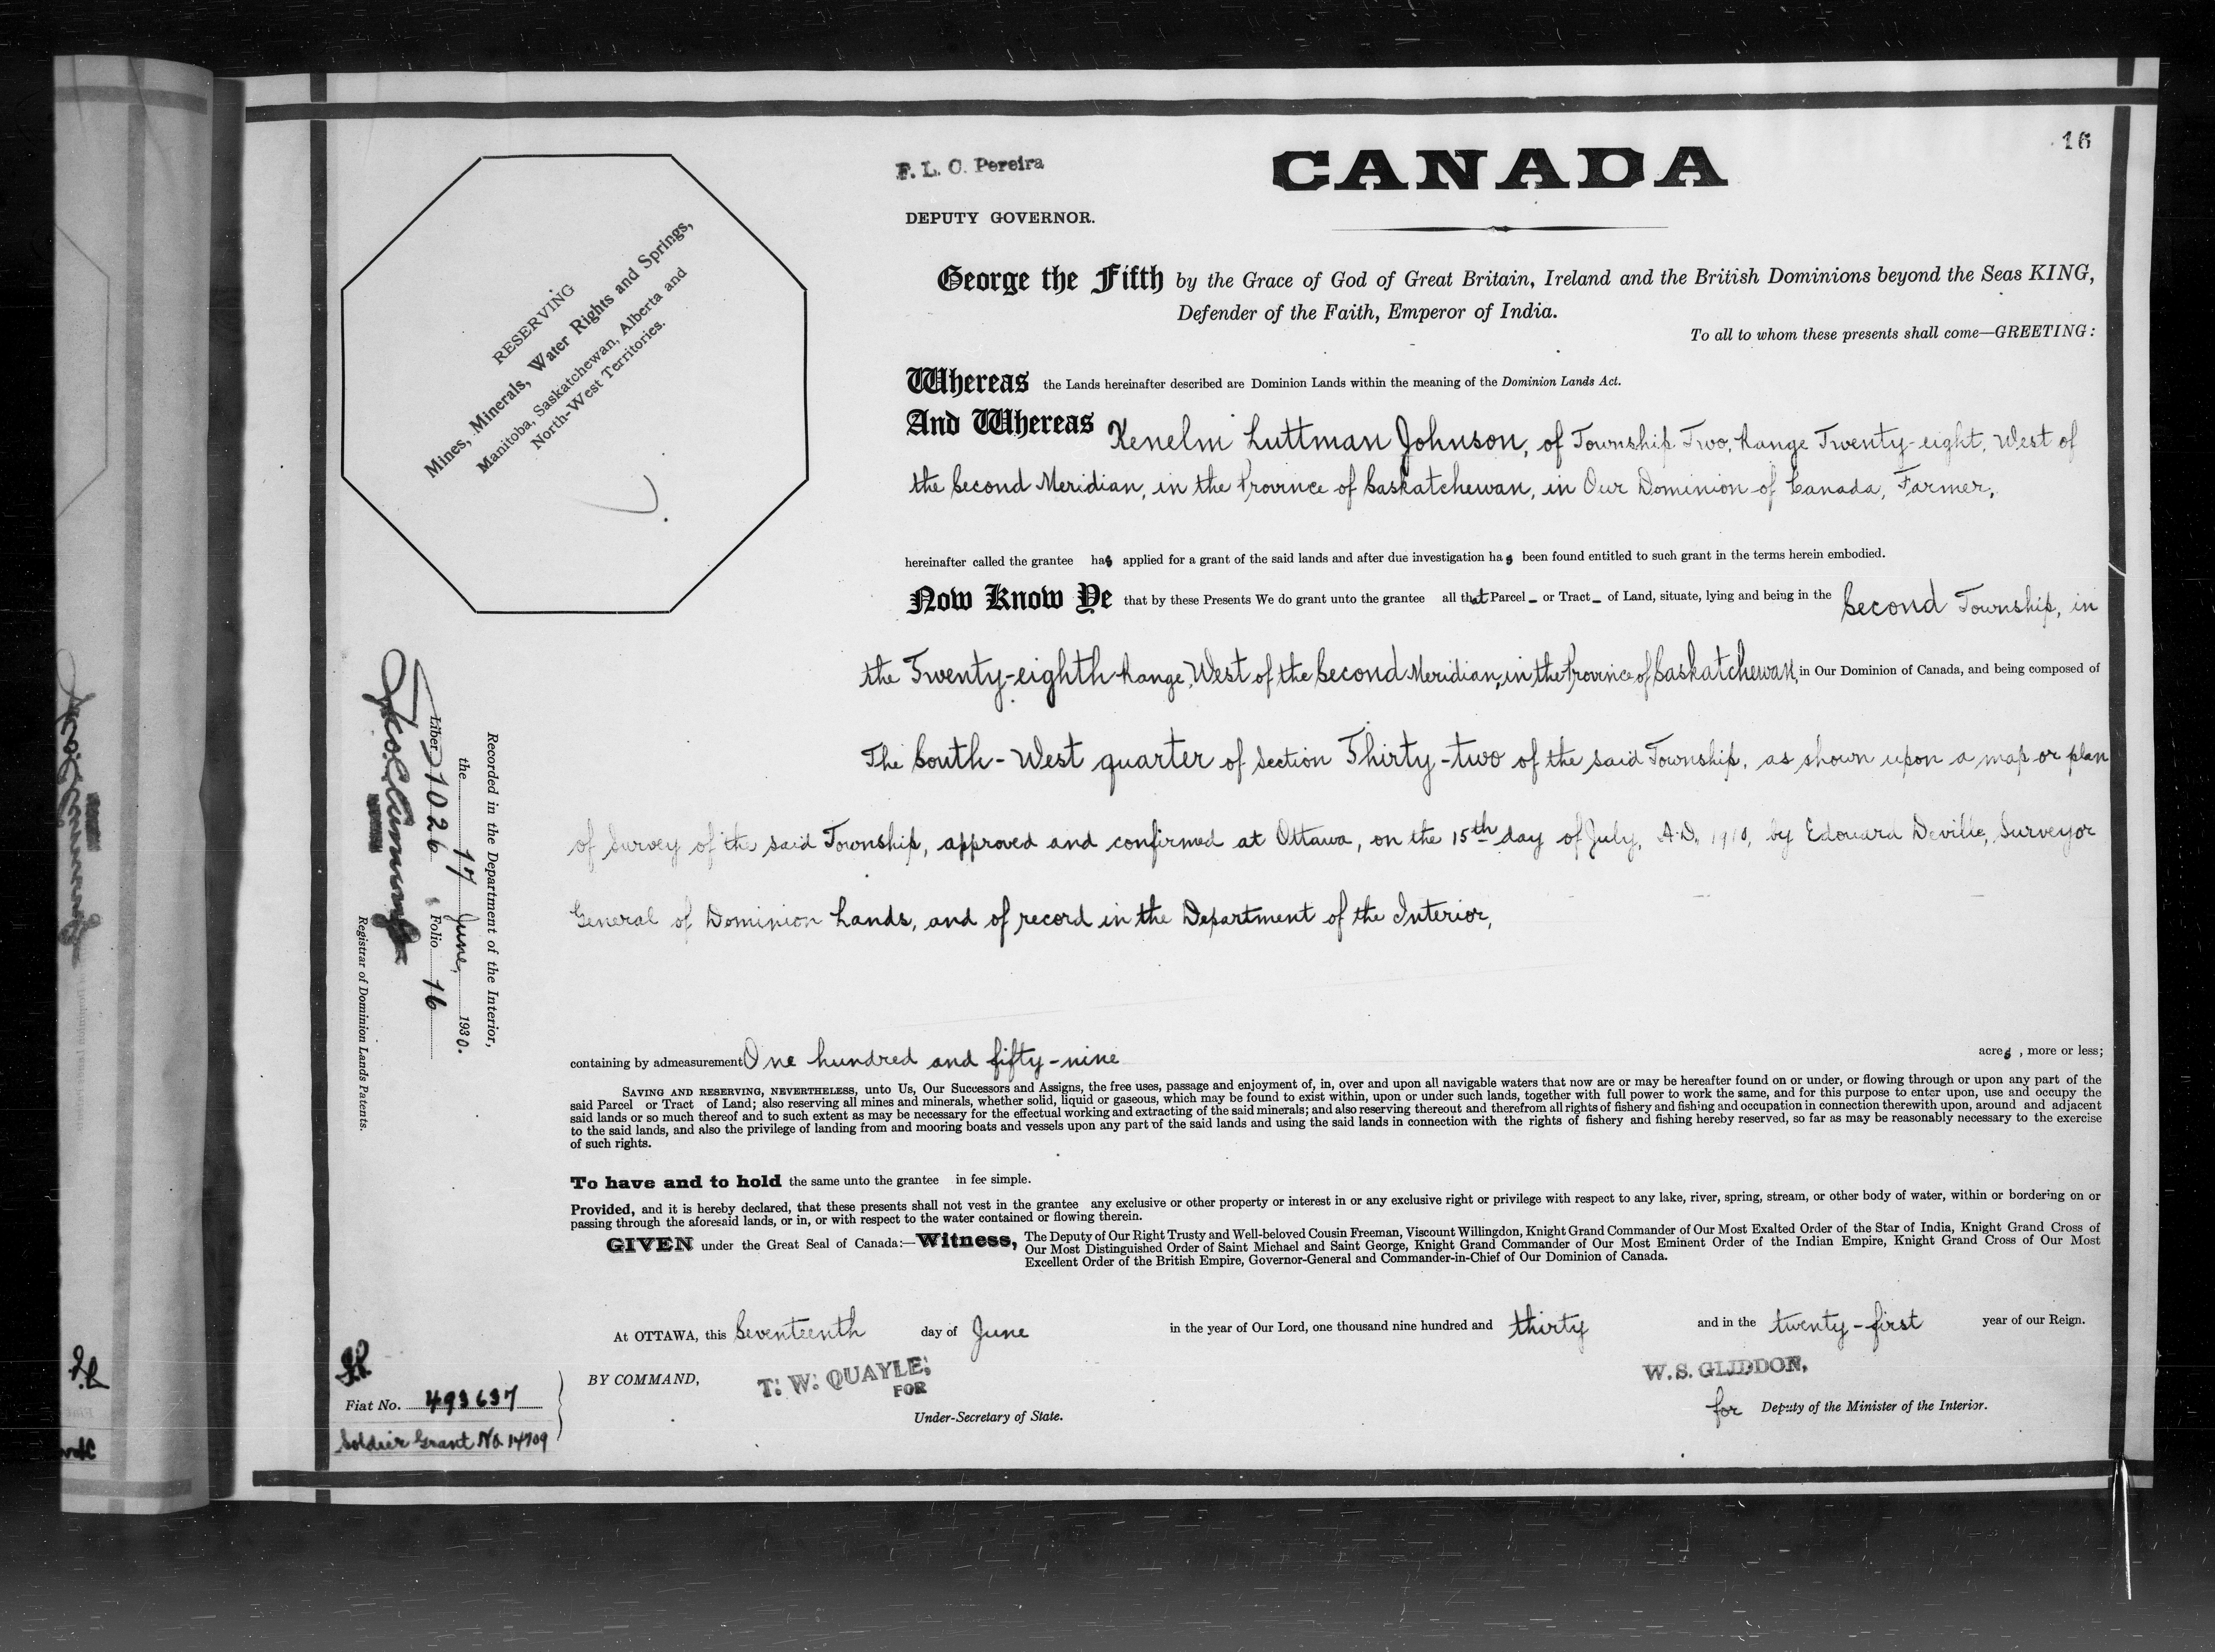 16
F. L. C. Pereira
CANADA
DEPUTY GOVERNOR.
RESERVING
Mines, Minerals, Water Rights and Springs,
Manitoba, Saskatchewan, Alberta and
North-West Territories.
George the Fifth by the Grace of God of Great Britain, Ireland and the British Dominions beyond the Seas KING,
Defender of the Faith, Emperor of India.
To all to whom these presents shall come—GREETING:
Whereas the Lands hereinafter described are Dominion Lands within the meaning of the Dominion Lands Act.
And Whereas Kenelm Luttman Johnson, of Township Two, Range Twenty-eight, West of
the Second Meridian, in the Province of Saskatchewan, in Our Dominion of Canada, Farmer,
hereinafter called the grantee has applied for a grant of the said lands and after due investigation has been found entitled to such grant in the terms herein embodied.
Now Know Ye that by these Presents We do grant unto the grantee all that Parcel or Tract of Land, situate, lying and being in the Second Township, in
the Twenty-eighth Range, West of the Second Meridian, in the Province of Saskatchewan, in Our Dominion of Canada, and being composed of
The South-West quarter of Section Thirty-two of the said Township, as shown upon a map or plan
of Survey of the said Township, approved and confirmed at Ottawa, on the 15th day of July, A.D. 1910, by Edouard Deville, Surveyor
General of Dominion Lands, and of record in the Department of the Interior,
containing by admeasurement One hundred and fifty-nine acres, more or less;
SAVING AND RESERVING, NEVERTHELESS, unto Us, Our Successors and Assigns, the free uses, passage and enjoyment of, in, over and upon all navigable waters that now are or may be hereafter found on or under, or flowing through or upon any part of the
said Parcel or Tract of Land; also reserving all mines and minerals, whether solid, liquid or gaseous, which may be found to exist within, upon or under such lands, together with full power to work the same, and for this purpose to enter upon, use and occupy the
said lands or so much thereof and to such extent as may be necessary for the effectual working and extracting of the said minerals; and also reserving thereout and therefrom all rights of fishery and fishing and occupation in connection therewith upon, around and adjacent
to the said lands, and also the privilege of landing from and mooring boats and vessels upon any part of the said lands and using the said lands in connection with the rights of fishery and fishing hereby reserved, so far as may be reasonably necessary to the exercise
of such rights.
To have and to hold the same unto the grantee in fee simple.
Provided, and it is hereby declared, that these presents shall not vest in the grantee any exclusive or other property or interest in or any exclusive right or privilege with respect to any lake, river, spring, stream, or other body of water, within or bordering on or
passing through the aforesaid lands, or in, or with respect to the water contained or flowing therein.
GIVEN under the Great Seal of Canada:—Witness, The Deputy of Our Right Trusty and Well-beloved Cousin Freeman, Viscount Willingdon, Knight Grand Commander of Our Most Exalted Order of the Star of India, Knight Grand Cross of
Our Most Distinguished Order of Saint Michael and Saint George, Knight Grand Commander of Our Most Eminent Order of the Indian Empire, Knight Grand Cross of Our Most
Excellent Order of the British Empire, Governor-General and Commander-in-Chief of Our Dominion of Canada.
At OTTAWA, this Seventeenth day of June in the year of Our Lord, one thousand nine hundred and thirty and in the twenty-first year of our Reign.
BY COMMAND,
T. W. QUAYLE,
FOR
Under-Secretary of State.
W. S. GLIDDON,
for Deputy of the Minister of the Interior.
Recorded in the Department of the Interior,
the 17 June, 1930.
Liber 1026 Folio 16
Registrar of Dominion Lands Patents.
Fiat No. 493637
Soldier Grant No. 14709